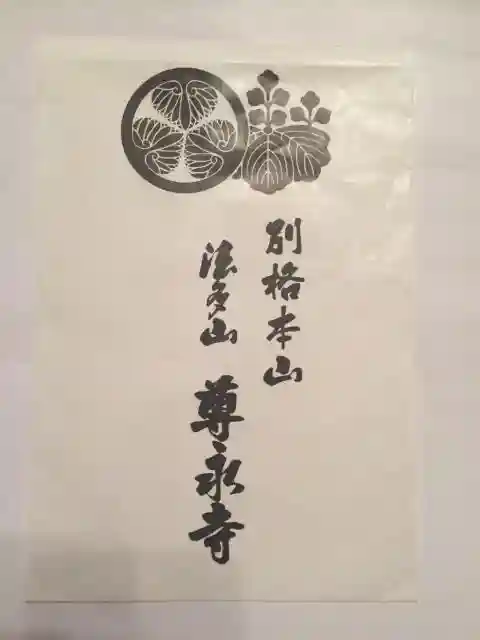 別格本山
法多山 尊永寺